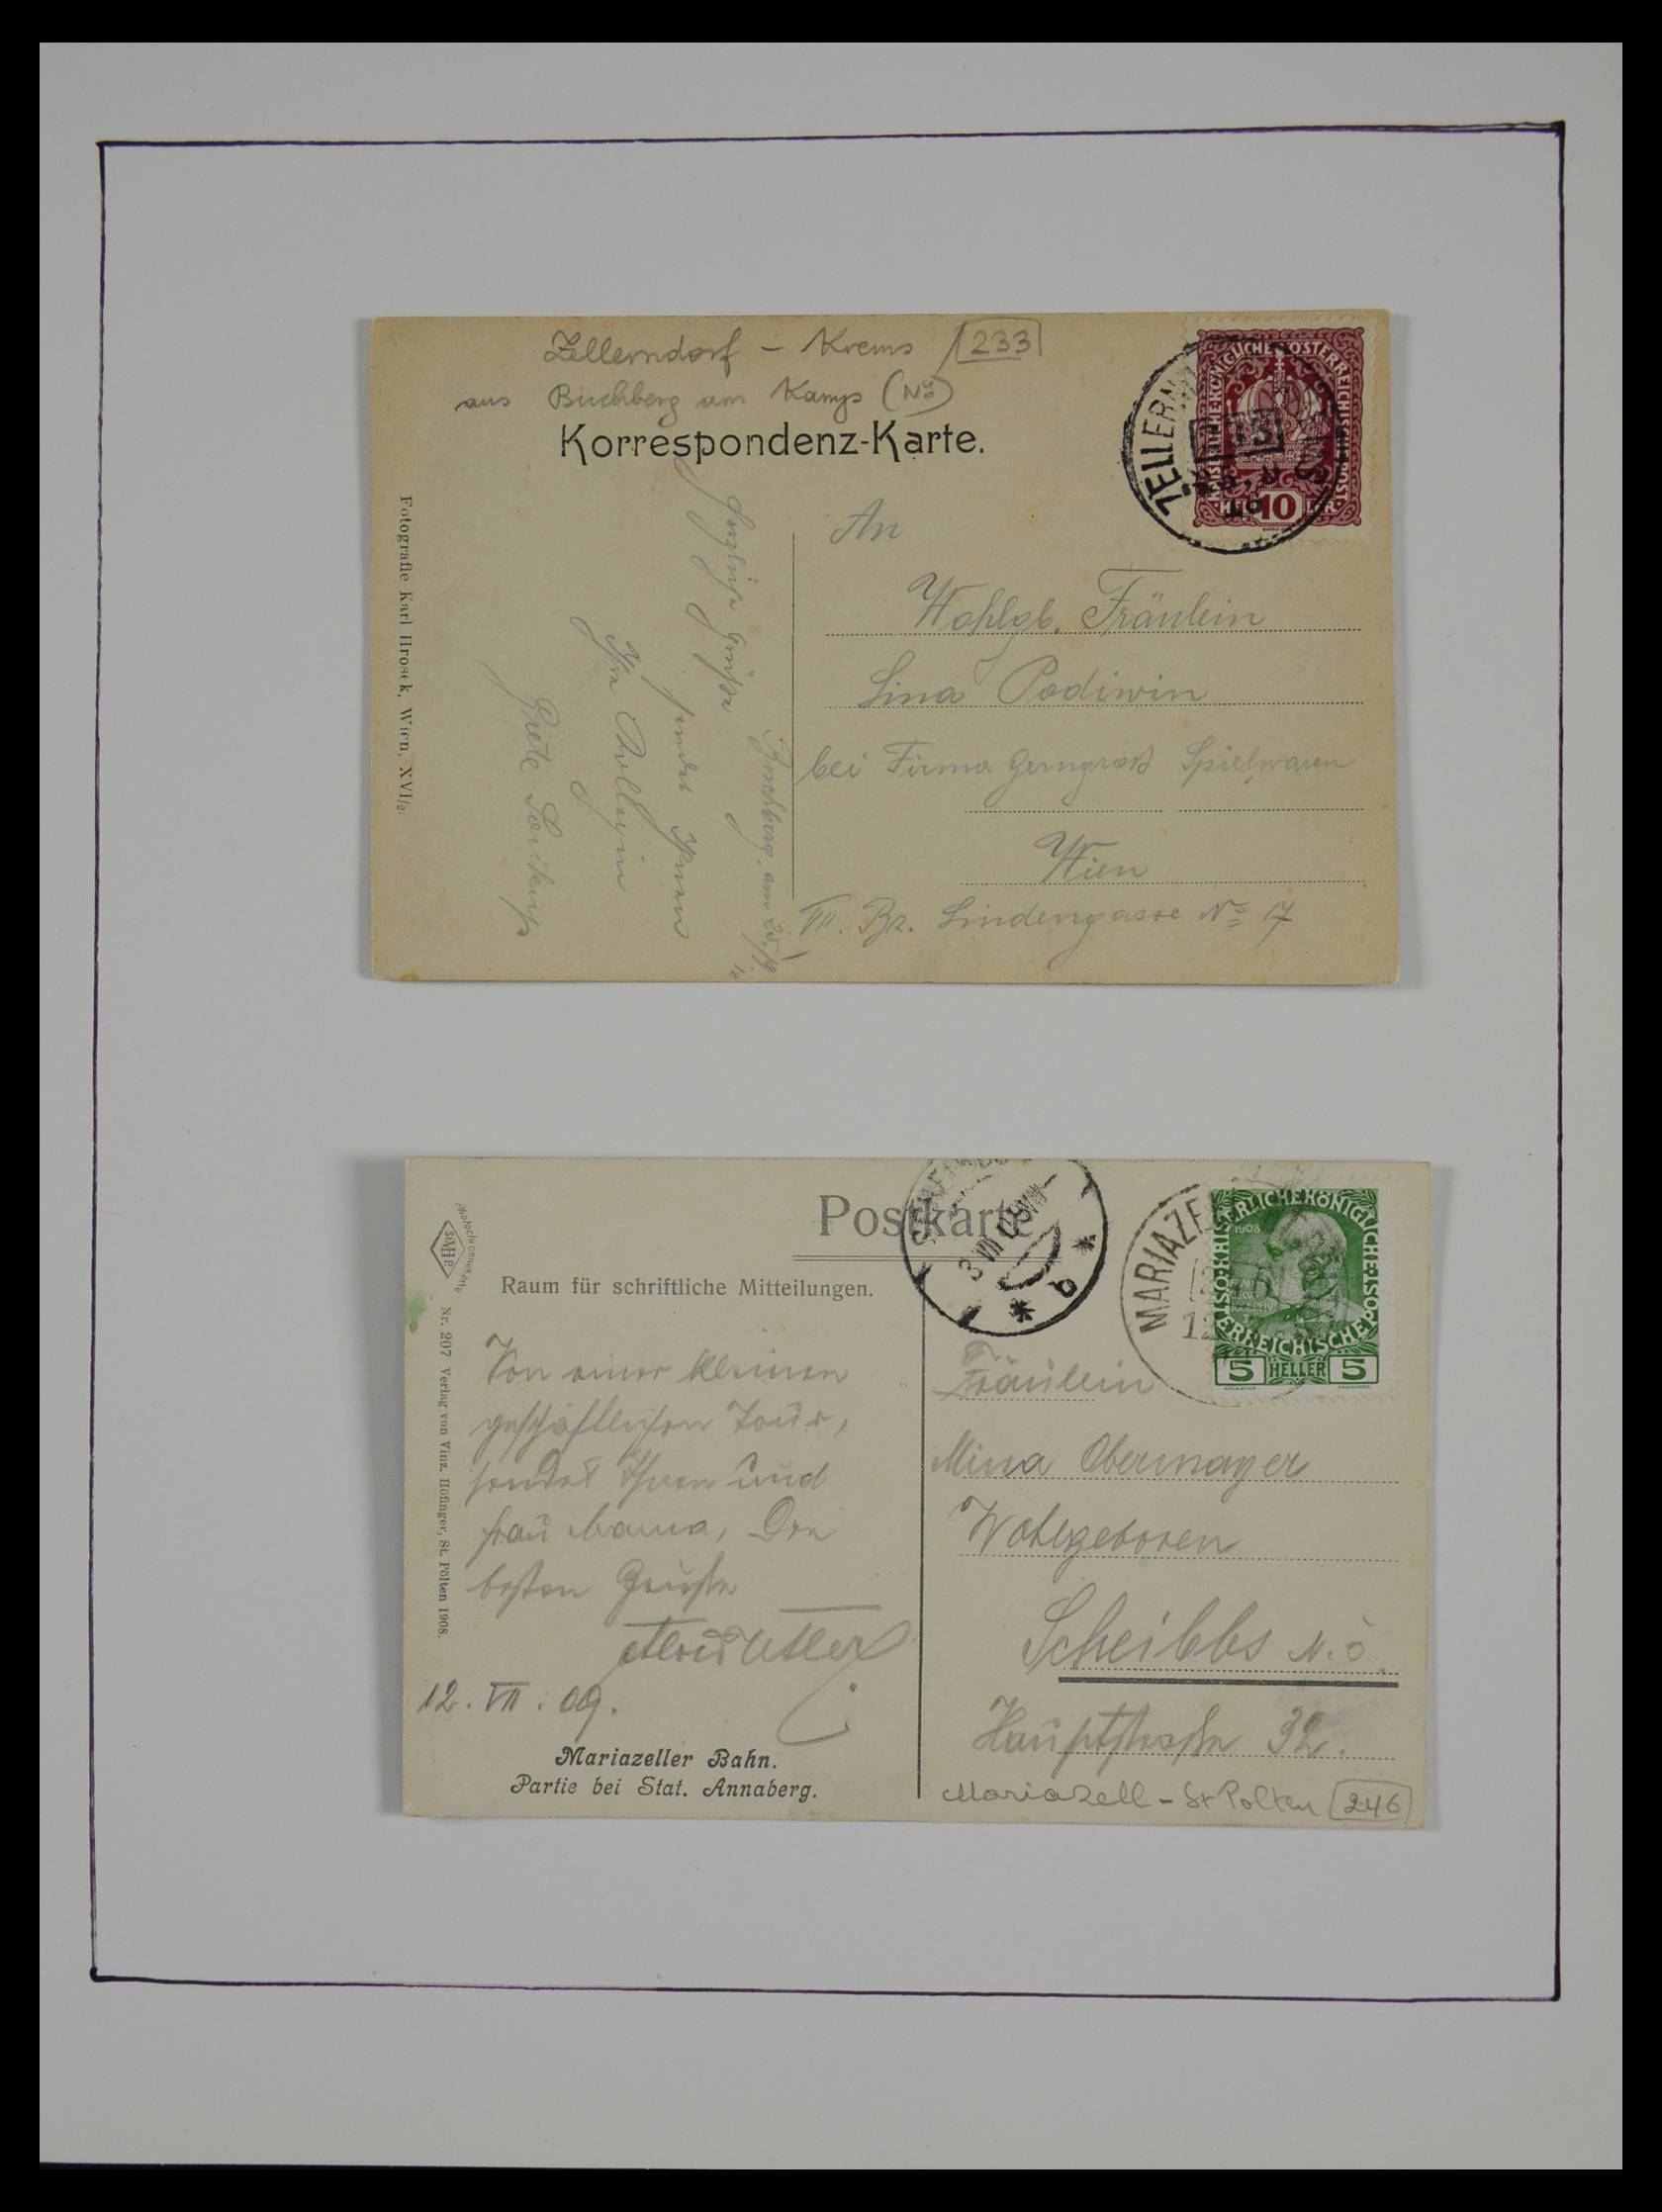 Zellerndorf – Krems 233
aus Buchberg am Kamp (NÖ)
Korrespondenz-Karte.
KAISERLICHE KÖNIGLICHE ÖSTERREICHISCHE POST
HELLER 10
ZELLERN
An
Wohlgb. Fräulein
Lina Podiwin
bei Firma Gerngross Spielwaren
Wien
VII. Bz. Lindengasse No 17
Buchberg, am 25./9
Grüsse
sendet Ihnen
Ihre Kollegin
Grete
Fotografie Karl Hrosek, Wien, XVI/2.
Postkarte
Raum für schriftliche Mitteilungen.
Von einer kleinen
geschäftlichen Tour,
sendet Ihnen und
Frau Mama, Die
besten Grüsse
12. VII. 09.
Mariazeller Bahn.
Partie bei Stat. Annaberg.
Photochromiekarte
Nr. 207 Verlag von Vinz. Höfinger, St. Pölten 1908.
MARIAZE
1908
5 HELLER 5
Fräulein
Mina Obermayer
Wohlgeboren
Scheibbs N.Ö.
Hauptstrasse 32.
Mariazell – St Polten 246